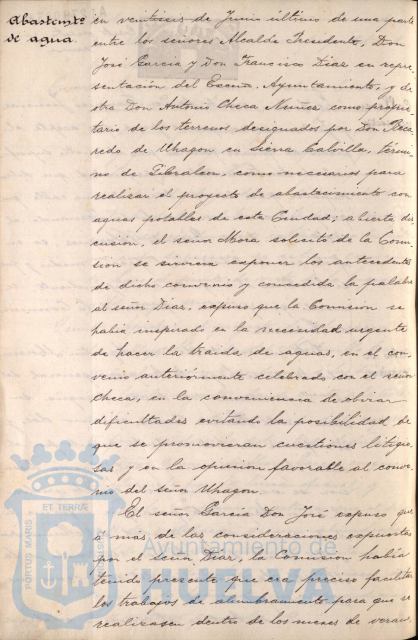 Abastemto
de agua.
en veintiseis de Junio último de una parte
entre los señores Alcalde Presidente, Don
José García y Don Francisco Díaz en repre-
sentación del Excmo. Ayuntamiento, y de
otra Don Antonio Checa Nuñez como propie-
tario de los terrenos designados por Don Reca
redo de Uhagon en Sierra Calvilla, térmi-
no de Gibraleon, como necesarios para
realizar el proyecto de abastecimiento con
aguas potables de esta Ciudad; abierta dis
cusión, el señor Mora solicitó de la Comi-
sion se sirviera exponer los antecedentes
de dicho convenio y concedida la palabra
al señor Diaz, expuso que la Comisión se
habia inspirado en la necesidad urgente
de hacer la traida de aguas, en el con-
venio anteriormente celebrado con el señor
Checa, en la conveniencia de obviar
dificultades evitando la posibilidad de
que se promovieran cuestiones litigio-
sas y en la opinion favorable al conve-
nio del señor Uhagon.
El señor García Don José expuso que
á mas de las consideraciones expuestas
por el señor Diaz, la Comision habia
tenido presente que era preciso facilitar
los trabajos de alumbramiento para que se
realizasen dentro de los meses de verano
PORTUS MARIS ET TERRAE
Ayuntamiento de
HUELVA